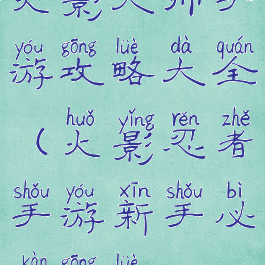 火影大师手
yóu gōng lüè dà quán
游攻略大全
huǒ yǐng rěn zhě
(火影忍者
shǒu yóu xīn shǒu bì
手游新手必
kàn gōng lüè